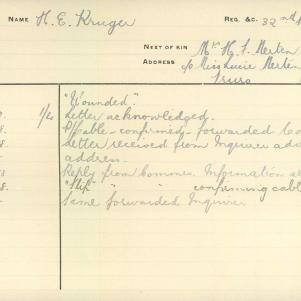 NAME H. E. Kruger REG. &C. 32nd
NEXT OF KIN Mrs H. F. Merten
ADDRESS c/o Miss Lucie Merten
Truro
"Wounded".
1/21 Letter acknowledged.
8. P/Cable - confirmed - forwarded
8. Letter received from Inquirer
address.
Reply from Commns. Information
8. "Slip" " " confirming cable
Same forwarded Inquirer